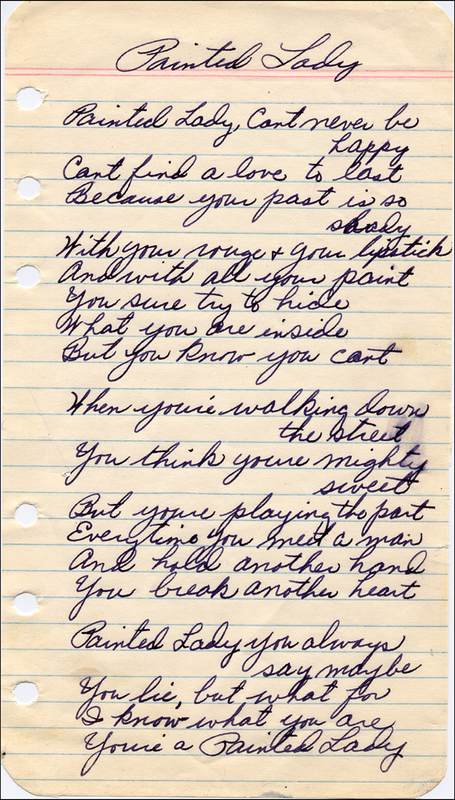 Painted Lady
Painted Lady, Cant never be
happy
Cant find a love to last
Because your past is so
shady
With your rouge & your lipstick
And with all your paint
You sure try to hide
What you are inside
But you know you cant
When you're walking down
the street
You think youre mighty
sweet
But youre playing the part
Everytime you meet a man
And hold another hand
You break another heart
Painted Lady you always
say maybe
You lie, but what for
I know what you are
You're a Painted Lady